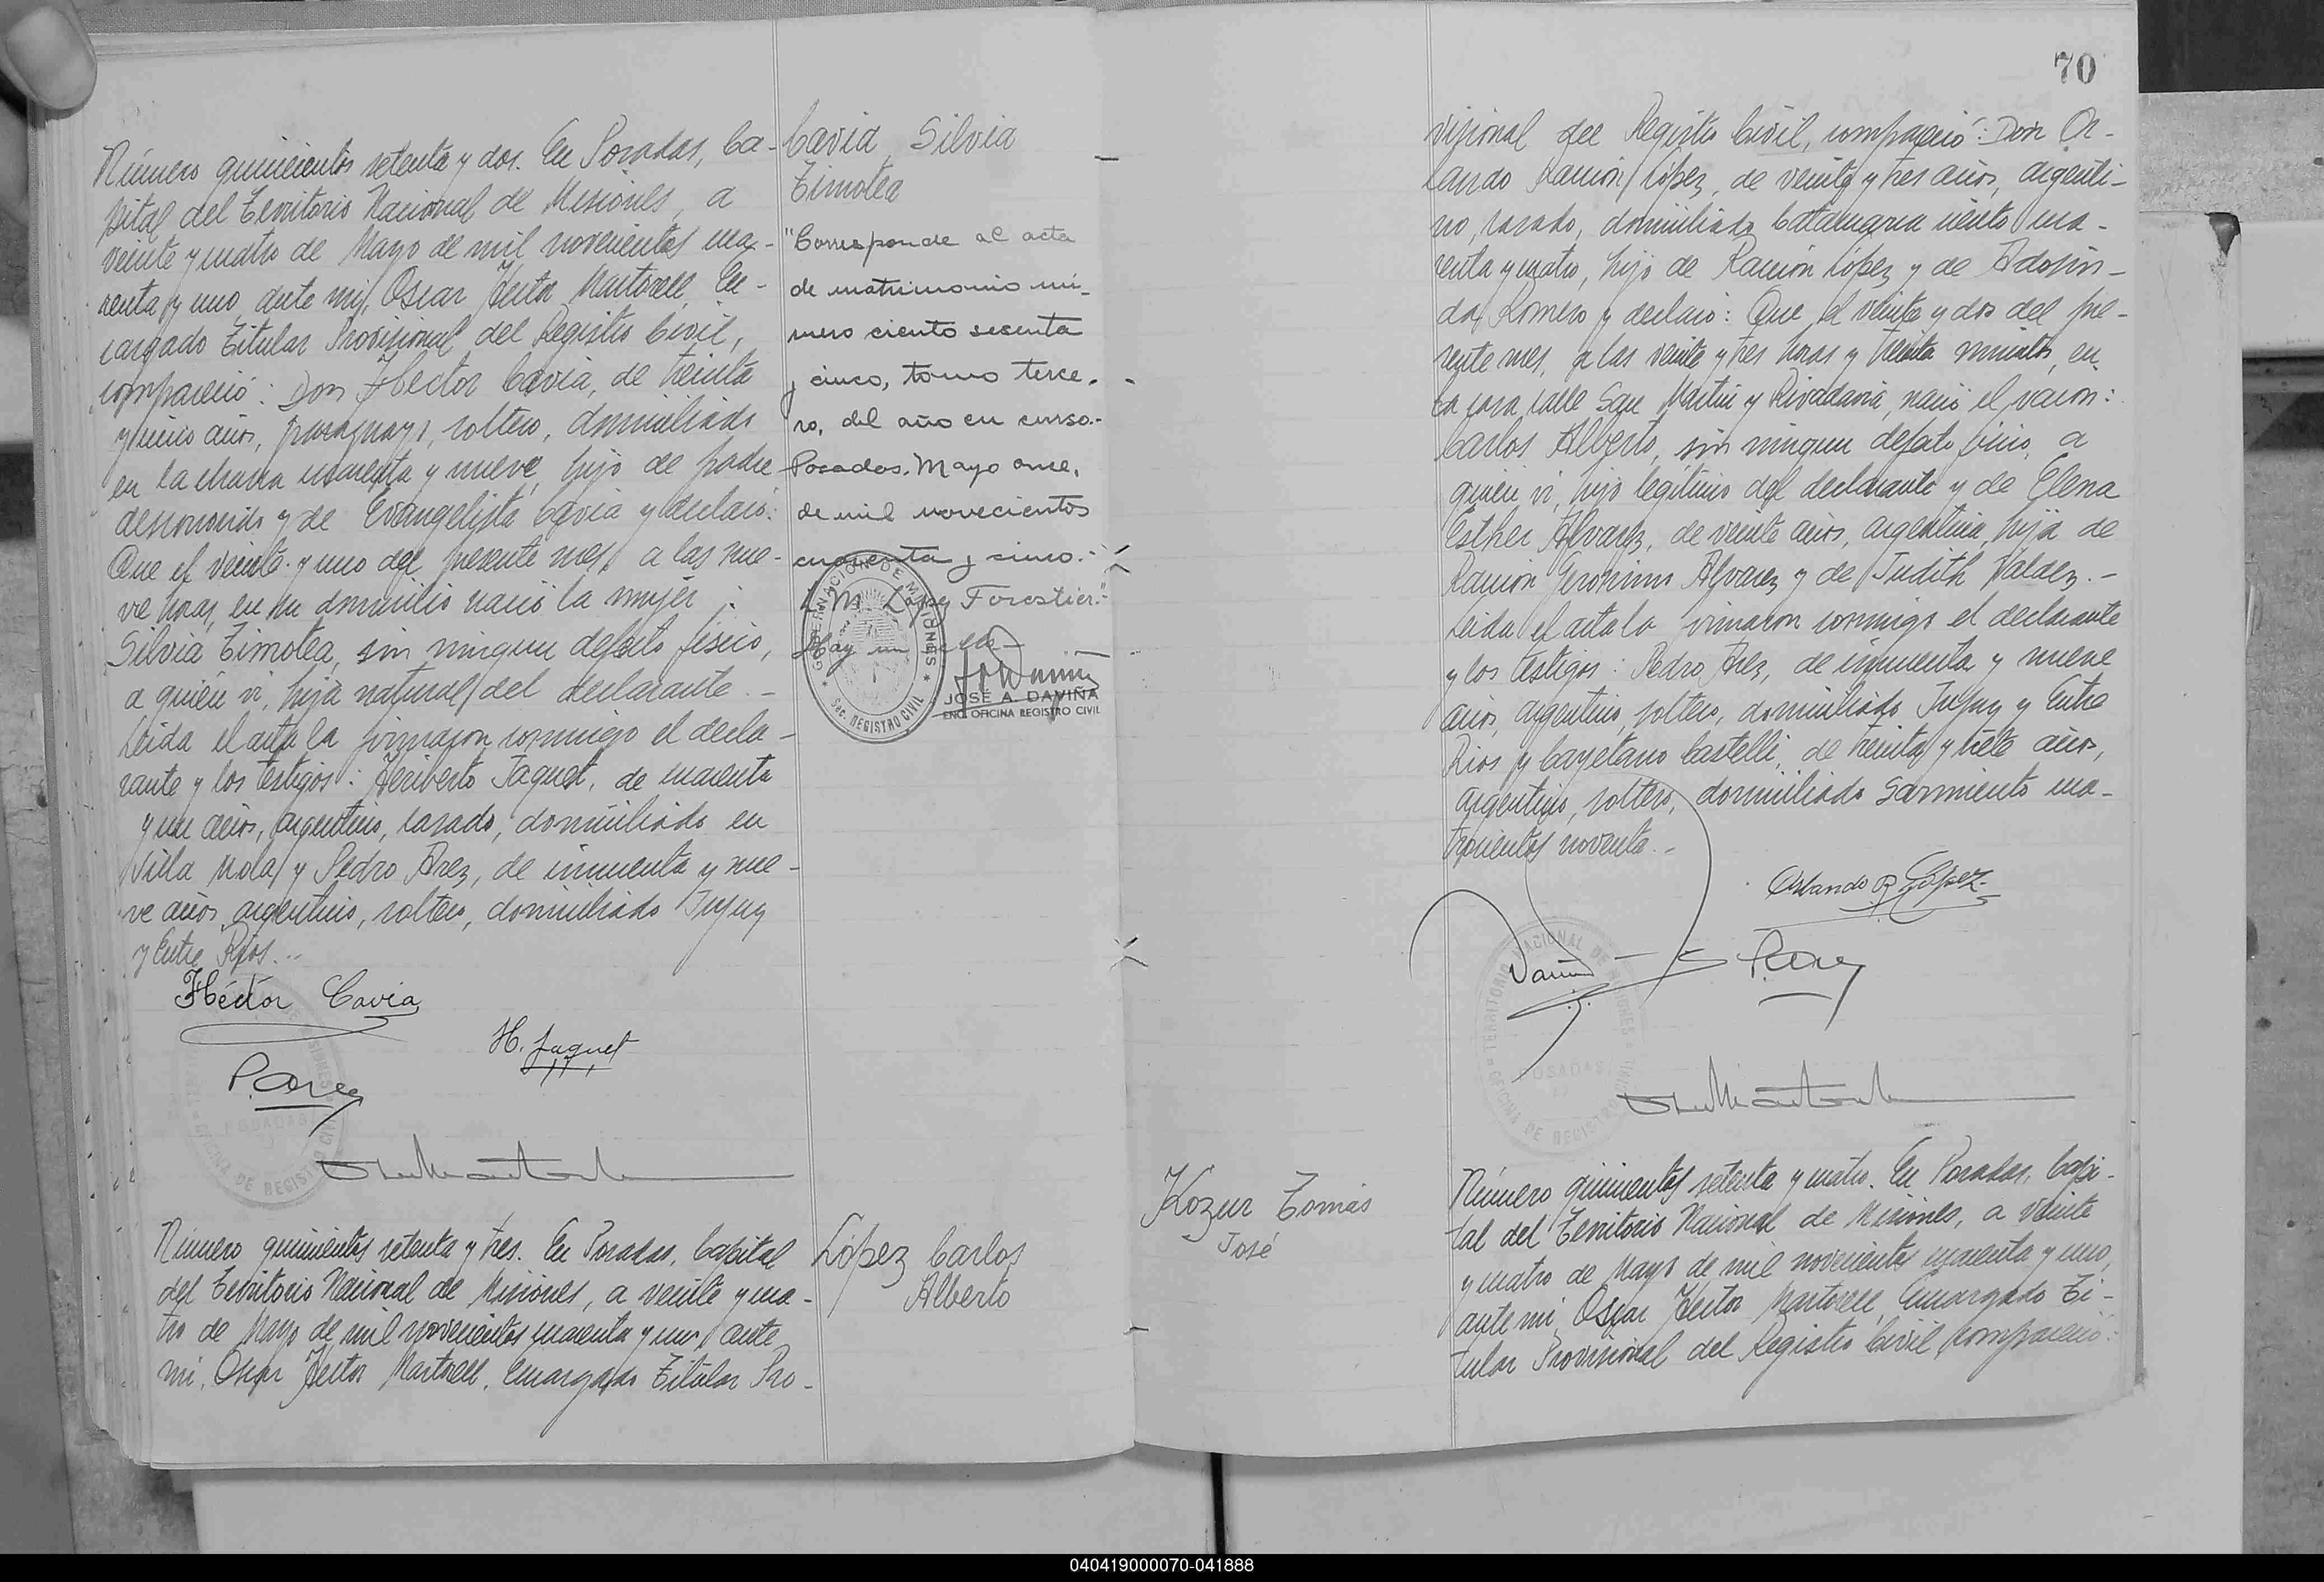 Número quinientos setenta y dos. En Posadas, Ca-
pital del Territorio Nacional de Misiones, a
veinte y cuatro de Mayo de mil novecientos cua-
renta y uno, ante mí, Oscar Hector Martorell, En-
cargado Titular Provisional del Registro Civil,
compareció: Don Hector Cavia, de treinta
y cinco años, paraguayo, soltero, domiciliado
en la chacra cuarenta y nueve, hijo de padre
desconocido y de Evangelista Cavia y declaró:
Que el veinte y uno del presente mes, a las nue-
ve horas, en su domicilio nació la mujer:
Silvia Timotea, sin ningun defecto físico,
a quién vi, hija natural del declarante.-
Leida el acta la firmaron conmigo el decla-
rante y los testigos: Heriberto Jaquet, de cuarenta
y un años, argentino, casado, domiciliado en
Villa Mola y Pedro Arez, de cincuenta y nue-
ve años, argentino, soltero, domiciliado Jujuy
y Entre Rios.-
Héctor Cavia
H. Jaquet
P. Arez
Número quinientos setenta y tres. En Posadas, Capital
del Territorio Nacional de Misiones, a veinte y cua-
tro de Mayo de mil novecientos cuarenta y uno, ante
mí, Oscar Hector Martorell, Encargado Titular Pro-
Cavia Silvia
Timotea
"Corresponde al acta
de matrimonio nú-
mero ciento sesenta
y cinco, tomo terce-
ro, del año en curso.-
Posadas, Mayo once,
de mil novecientos
cuarenta y cinco.-
L. M. López Forestier."
Hay un sello-
GOBERNACION DE MISIONES
Sec. REGISTRO CIVIL
JOSÉ A. DAVIÑA
ENC. OFICINA REGISTRO CIVIL
López Carlos
Alberto
70
visional del Registro Civil, compareció: Don Or-
lando Ramón López, de veinte y tres años, argenti-
no, casado, domiciliado Catamarca ciento cua-
renta y cuatro, hijo de Ramón López y de Adosin-
da Romero y declaró: Que el veinte y dos del pre-
sente mes, a las veinte y tres horas y treinta minutos, en
la casa calle San Martin y Rivadavia, nació el varon:
Carlos Alberto, sin ningun defecto físico, a
quién vi, hijo legítimo del declarante y de Elena
Esther Alvarez, de veinte años, argentina, hija de
Ramón Geronimo Alvarez y de Judith Valdez.-
Leida el acta la firmaron conmigo el declarante
y los testigos: Pedro Arez, de cincuenta y nueve
años, argentino, soltero, domiciliado Jujuy y Entre
Rios y Cayetano Castelli, de treinta y siete años,
argentino, soltero, domiciliado Sarmiento cua-
trocientos noventa.-
Orlando R. López
P. Arez
TERRITORIO NACIONAL DE MISIONES
POSADAS
OFICINA DE REGISTRO CIVIL
Kozur Tomás
José
Número quinientos setenta y cuatro. En Posadas, Capi-
tal del Territorio Nacional de Misiones, a veinte
y cuatro de Mayo de mil novecientos cuarenta y uno,
ante mí, Oscar Hector Martorell, Encargado Ti-
tular Provisional del Registro Civil, compareció:
040419000070-041888